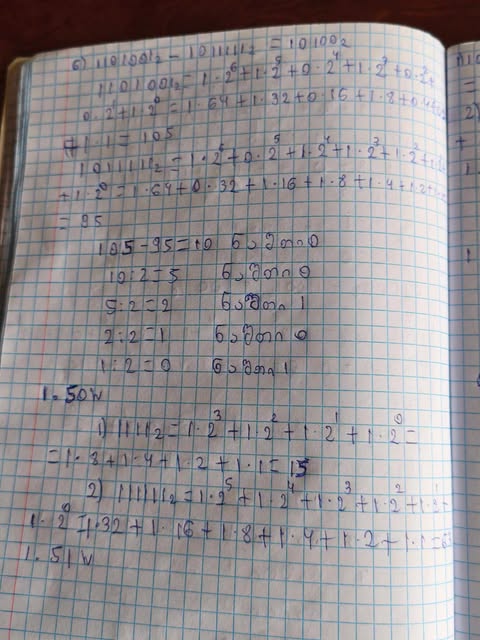 6) 1101001₂ - 1011111₂ = 10100₂
1101001₂ = 1·2⁶+1·2⁵+0·2⁴+1·2³+0·2²+
0·2¹+1·2⁰ = 1·64+1·32+0·16+1·8+0·4+
+1·1=105
1011111₂ = 1·2⁶+0·2⁵+1·2⁴+1·2³+1·2²+1·
+1·2⁰ = 1·64+0·32+1·16+1·8+1·4+1·2+
= 95
105-95=10 ნაშთი 0
10:2=5 ნაშთი 0
5:2=2 ნაშთი 1
2:2=1 ნაშთი 0
1:2=0 ნაშთი 1
1.50
1) 11111₂ = 1·2³+1·2²+1·2¹+1·2⁰=
=1·8+1·4+1·2+1·1=15
2) 111111₂=1·2⁵+1·2⁴+1·2³+1·2²+1·2¹+
1·2⁰=1·32+1·16+1·8+1·4+1·2+1·1=63
1.51